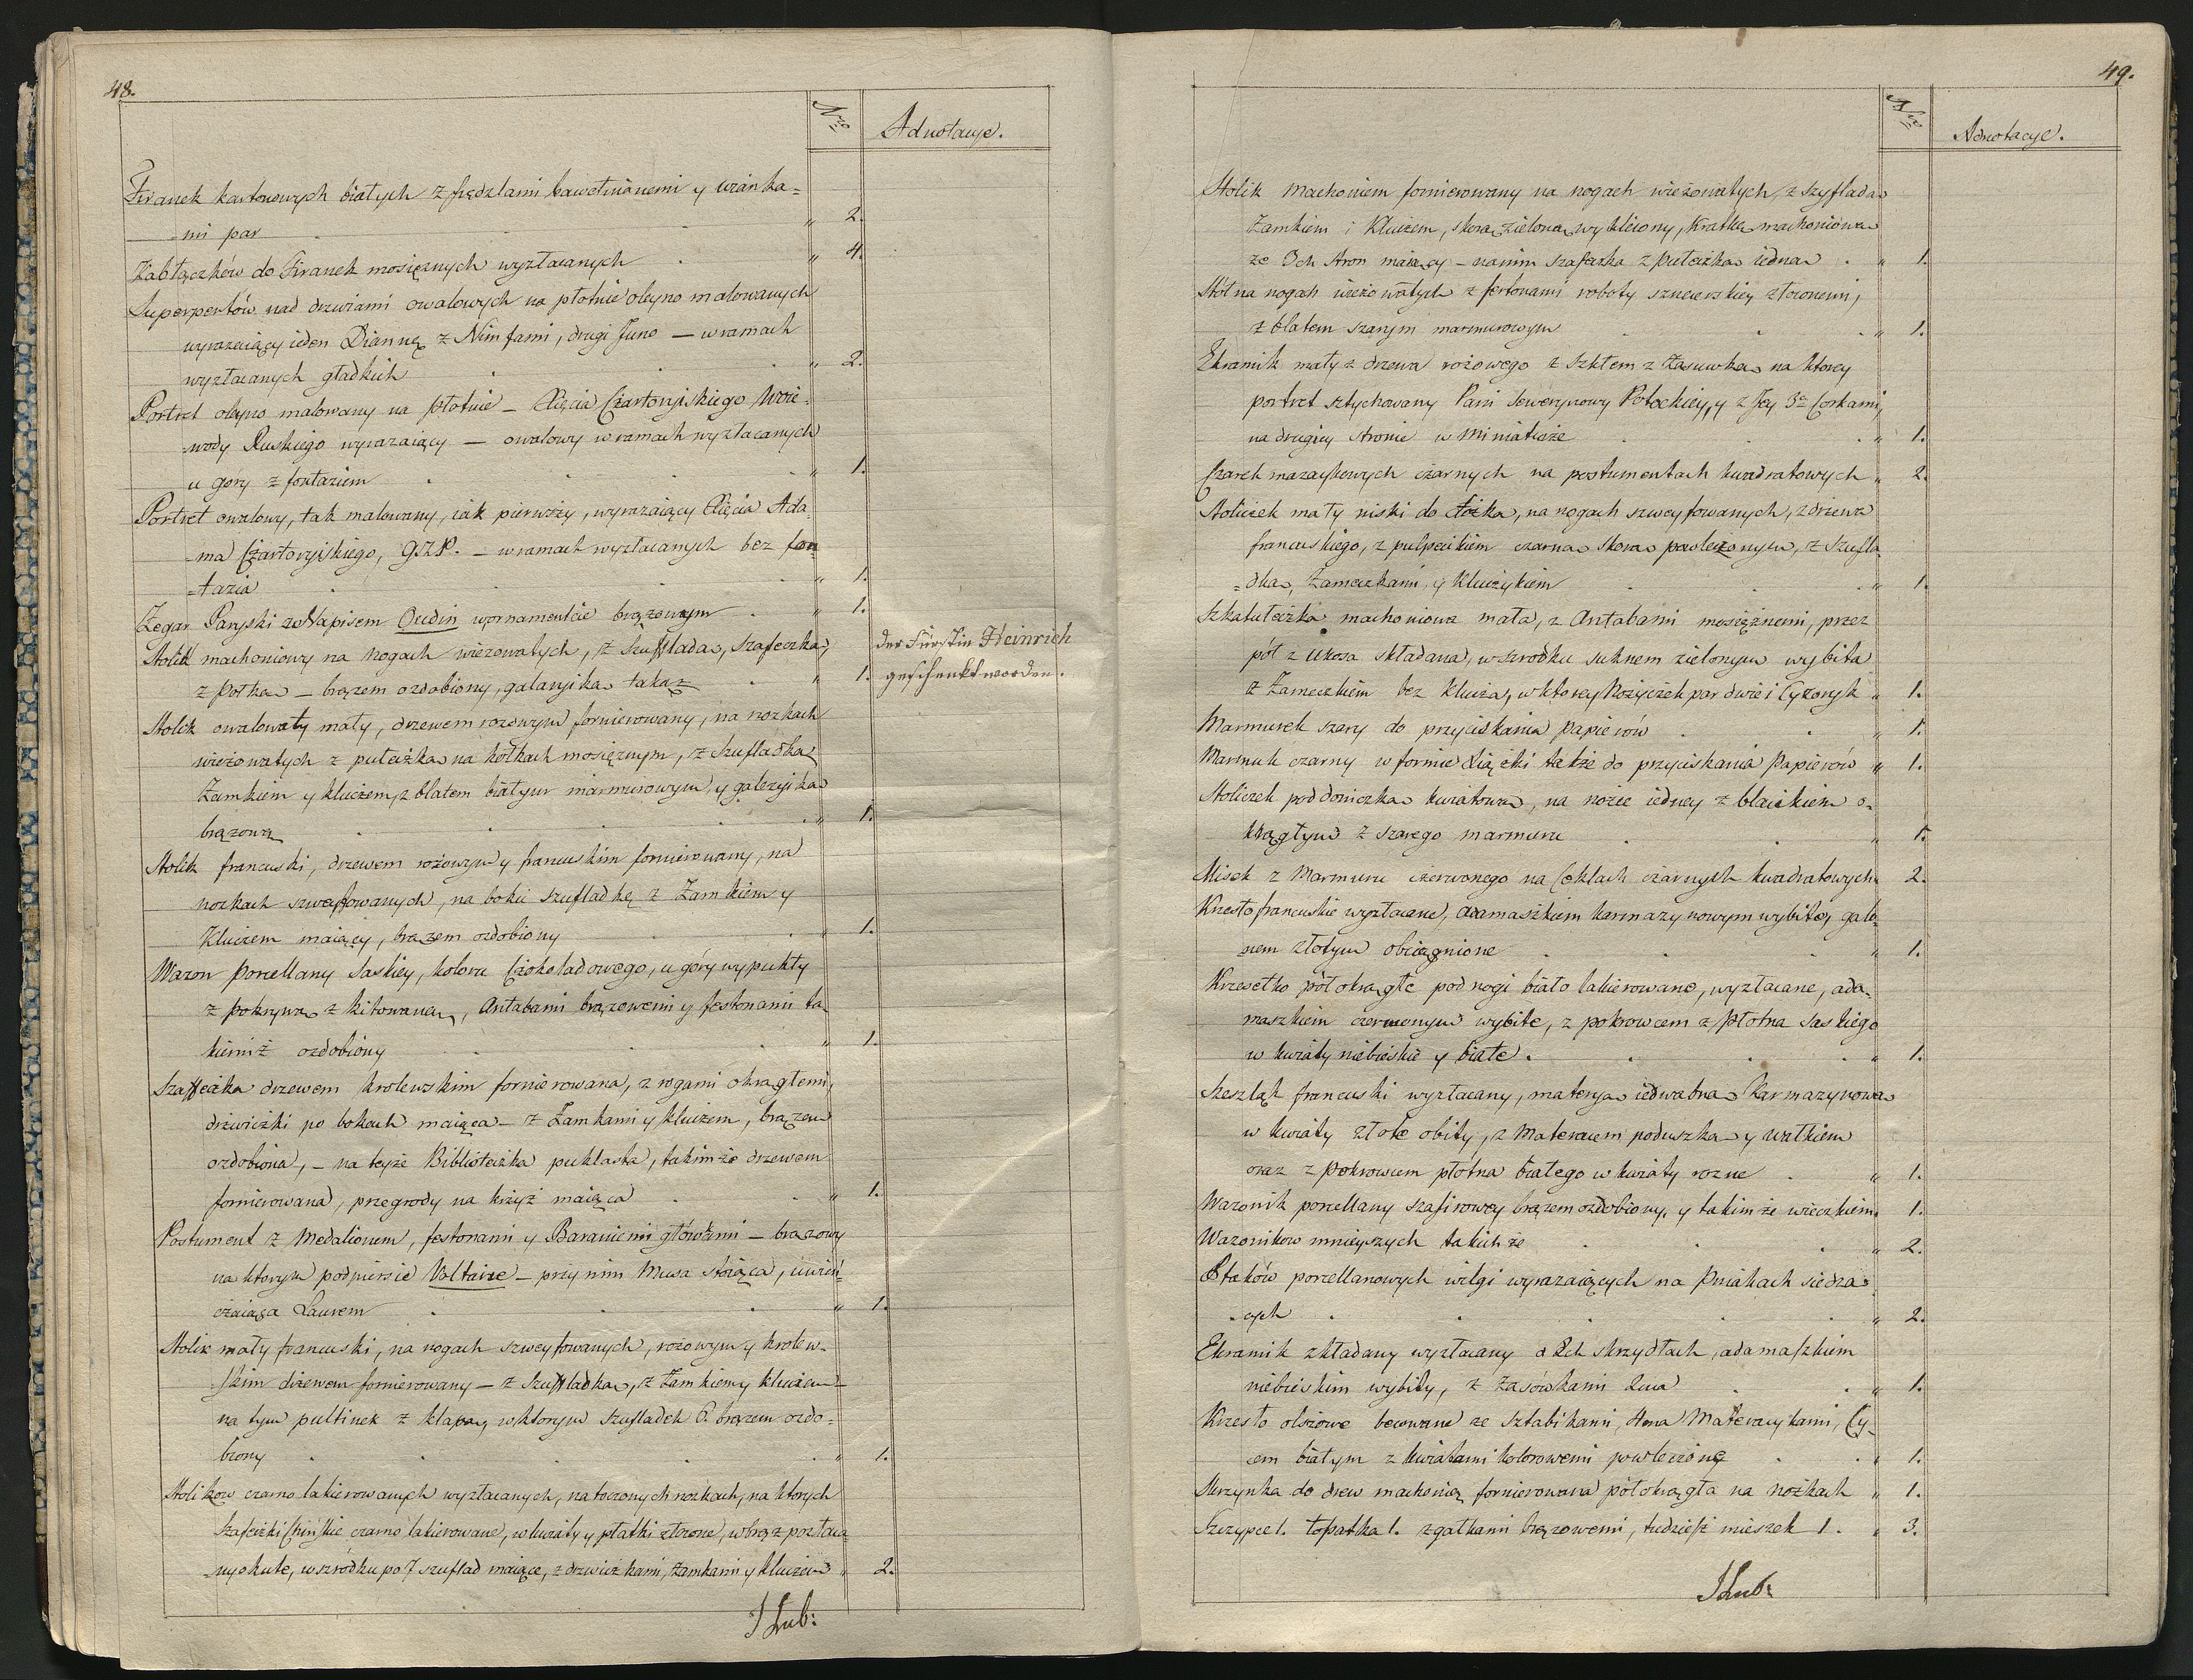 48.
Nro
Adnotacye.
Firanek kartonowych białych z frędzlami bawełnianemi y wianka=
=mi par " 2.
Kabłączków do Firanek mosiężnych wyzłacanych " 4.
Superportów nad drzwiami owalowych na płotnie oleyno malowanych
wyrazaiący ieden Diannę z Nimfami, drugi Juno — w ramach
wyzłacanych gładkich " 2.
Portret oleyno malowany na płotnie — Xięcia Czartoryiskiego Woie=
=wody Ruskiego wyrazaiący — owalowy w ramach wyzłacanych
u góry z fontaziem " 1.
Portret owalowy, tak malowany, iak pierwszy, wyrazaiący Xięcia Ada=
=ma Czartoryiskiego, GZP. — w ramach wyzłacanych bez fon=
=tazia " 1.
Zegar Paryski z Napisem Oudin w ornamencie brązowym " 1.
Stolik machoniowy na nogach wiezowatych, z Szufladą, szafeczką,
z połką — brązem ozdobiony, galaryiką taką " 1.
der Fürstin Heinrich
geschenkt worden.
Stolik owalowaty mały, drzewem rozowym fornierowany, na nozkach
wieżowatych z puteczką na kołkach mosięznym, z Szufladką
Zamkiem y kluczem, z blatem białym marmurowym, y galeryiką
brązową " 1.
Stolik francuski, drzewem rożowym y francuskim fornierowany, na
nozkach szweyfowanych, na boku szufladkę z Zamkiem y
Kluczem maiący, brązem ozdobiony " 1.
Wazon Porcellany Saskiey, koloru Czokoladowego, u góry wypukły
z pokrywą z kitowaną, Antabami brązowemi y festonami ta=
kiemiż ozdobiony " 1.
Szafeczka drzewem krolewskim fornierowana, z rogami okrągłemi,
drzwiczki po bokach maiąca — z Zamkami y kluczem, brązem
ozdobiona, — na teyże Biblioteczka puklasta, takimże drzewem
fornierowana, przegrody na krzyż maiąca " 1.
Postument z Medalionem, festonami y Baraniemi głowami — brązowy
na ktorym podpiersie Voltaire — przy nim Muza stoiąca, uwień=
czaiąca Laurem " 1.
Stolik mały francuski, na nogach szweyfowanych, rożowym y krolew=
skim drzewem fornierowany — z Szufladką, z Zamkiem y kluczem —
na tym pultinek z klapą, w ktorym szufladek 6. brązem ozdo=
biony " 1.
Stolikow czarno lakierowanych wyzłacanych, na toczonych nozkach, na ktorych
Szafeczki Chińskie czarno lakierowane, w kwiaty y ptatki złocone, w brąz pozłaca=
=ny okute, w srodku po 7 szuflad maiące, z drzwiczkami, Zamkami y kluczem " 2.
J Lub:
49.
Nro
Adnotacye.
Stolik Machoniem fornierowany na nogach wieżowatych, z szyfladą
Zamkiem i Kluczem, skorą zieloną wykleiony, Kratkę machoniową
ze 3ch stron maiący — na nim szafeczka z puteczką iedną " 1.
Stół na nogach wieżowatych z festonami roboty sznycerskiey złoconemi,
z blatem szarym marmurowym " 1.
Ekranik mały z drzewa rożowego z Szkłem z Zasuwką na ktorey
portret sztychowany Pani Sewerynowy Potockiey, y z Jey 3a Corkami,
na drugiey stronie w Miniaturze " 1.
Czarek mazaykowych czarnych na postumentach kwadratowych " 2.
Stoliczek mały niski do łożka, na nogach szweyfowanych, z drzewa
francuskiego, z pulpecikiem czarną skorą powleczonym, z Szufla=
=dką, Zameczkami, y Kluczykiem " 1.
Szkatuleczka machoniowa mała, z Antabami mosiążnemi, przez
pół z ukosa składana, w srodku suknem zielonym wybita
z Zameczkiem bez Klucza, w ktorey Nożyczek par dwie i Cyzoryk " 1.
Marmurek szary do przyciskania papierów " 1.
Marmur czarny w formie Xiążki także do przyciskania Papierów " 1.
Stoliczek pod doniczką kwiatową, na nóżce iedney z blacikiem o=
krągłym z szarego marmuru " 1.
Misek z Marmuru czerwonego na Coklach czarnych kwadratowych " 2.
Krzesło francuskie wyzłacane, adamaszkiem karmazynowym wybite, galo=
nem złotym obciągnione " 1.
Krzesełko półokrągłe pod nogi biało lakierowane, wyzłacane, ada=
maszkiem czerwonym wybite, z pokrowcem z Płotna Saskiego
w kwiaty niebieskie y białe " 1.
Szezląk francuski wyzłacany, materyą iedwabną Karmazynową
w kwiaty złote obity, z Materacem poduszką y wałkiem
oraz z Pokrowcem płotna białego w kwiaty rozne " 1.
Wazonik porcellany szafirowey brązem ozdobiony, y takimże wieczkiem " 1.
Wazonikow mnieyszych takichże " 2.
Ptaków porcellanowych wilgi wyrazaiących na Pniakach siedzą=
=cych " 2.
Ekranik składany wyzłacany o 2ch skrzydłach, adamaszkiem
niebieskim wybity, z Zasówkami 2ma " 1.
Krzesło olszowe becowane ze sztabikami, 4ma Materacykami, Cy=
cem białym z kwiatami kolorowemi powleczone " 1.
Skrzynka do drew machonią fornierowana półokrągła na nóżkach " 1.
Szczypce 1. Łopatka 1. z gałkami brązowemi, tudzież mieszek 1. " 3.
J Lub: